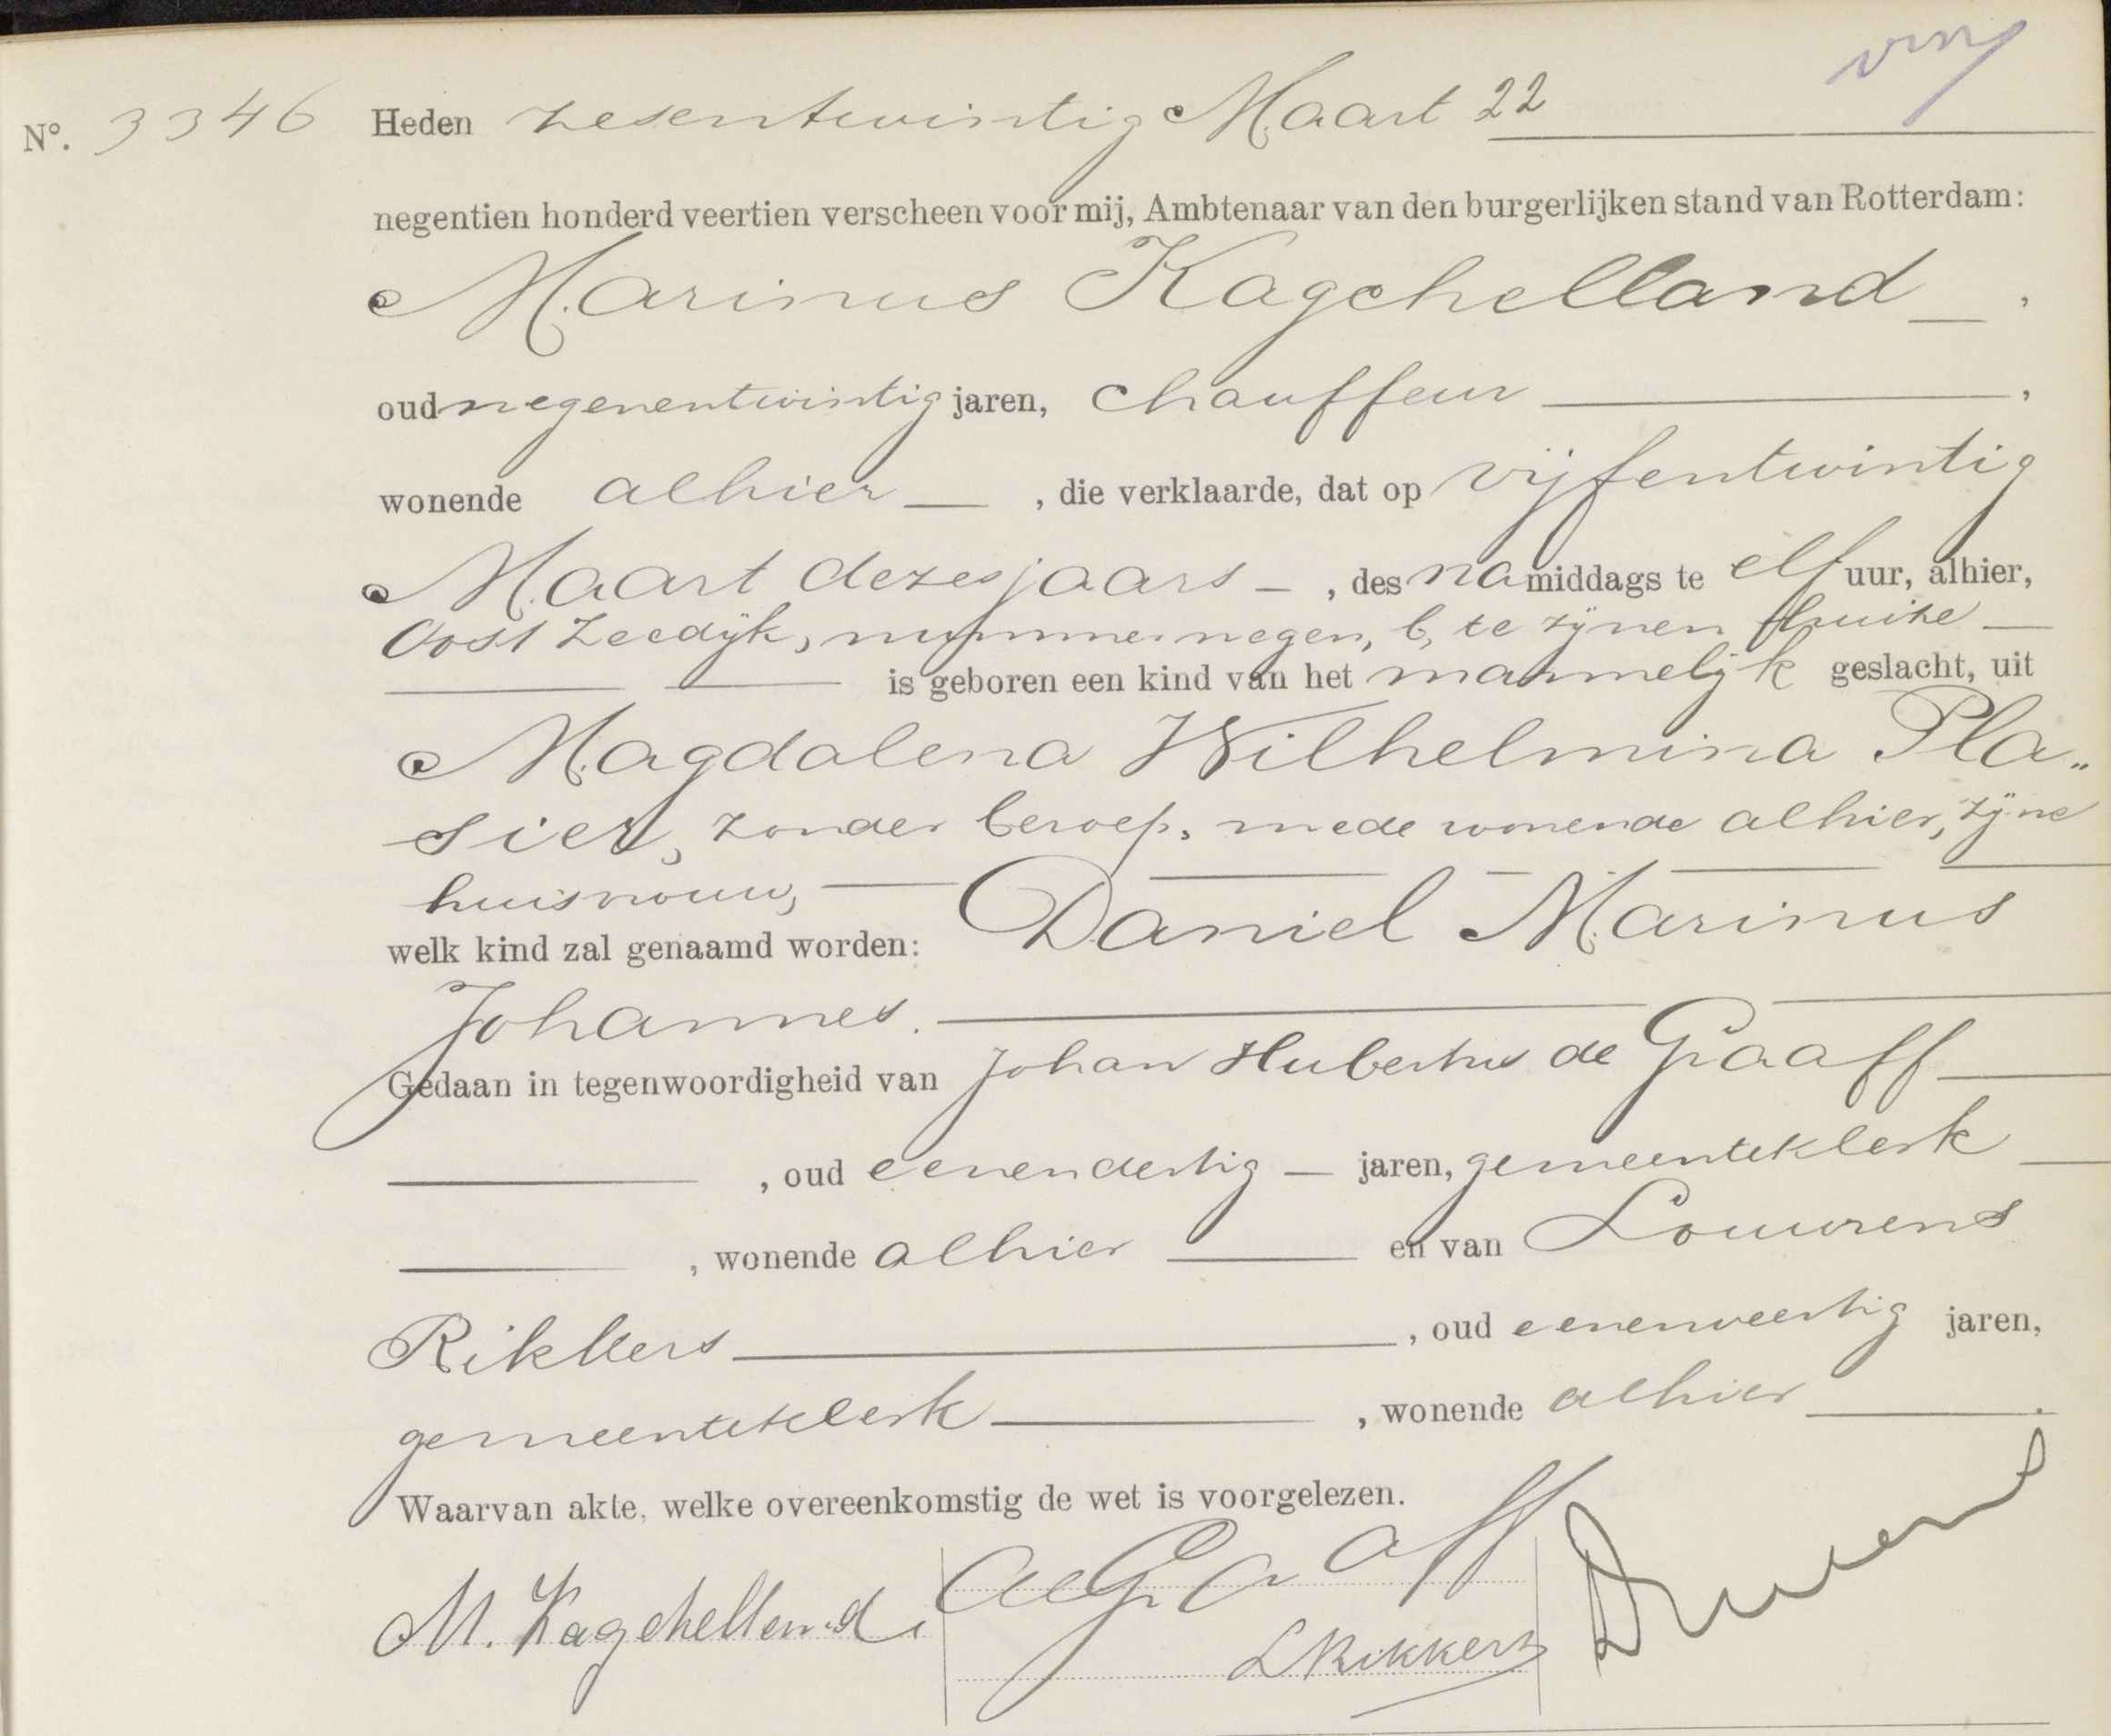 Nº. 3346 Heden zesentwintig Maart 22
negentien honderd veertien verscheen voor mij, Ambtenaar van den burgerlijken stand van Rotterdam:
Marinus Kagchelland ,
oud negenentwintig jaren, chauffeur ,
wonende alhier , die verklaarde, dat op vijfentwintig
Maart dezes jaars , des namiddags te elf uur, alhier,
Oost Zeedijk, nummer negen, b, te zijnen huize
is geboren een kind van het mannelijk geslacht, uit
Magdalena Wilhelmina Pla„
sier, zonder beroep, mede wonende alhier, zijne
huisvrouw,
welk kind zal genaamd worden: Daniel Marinus
Johannes.
Gedaan in tegenwoordigheid van Johan Hubertus de Graaff
, oud eenendertig jaren, gemeenteklerk
, wonende alhier en van Louwrens
Rikkers , oud eenenveertig jaren,
gemeenteklerk , wonende alhier .
Waarvan akte, welke overeenkomstig de wet is voorgelezen.
M. Kagchelland. de Graaff
L Rikkers